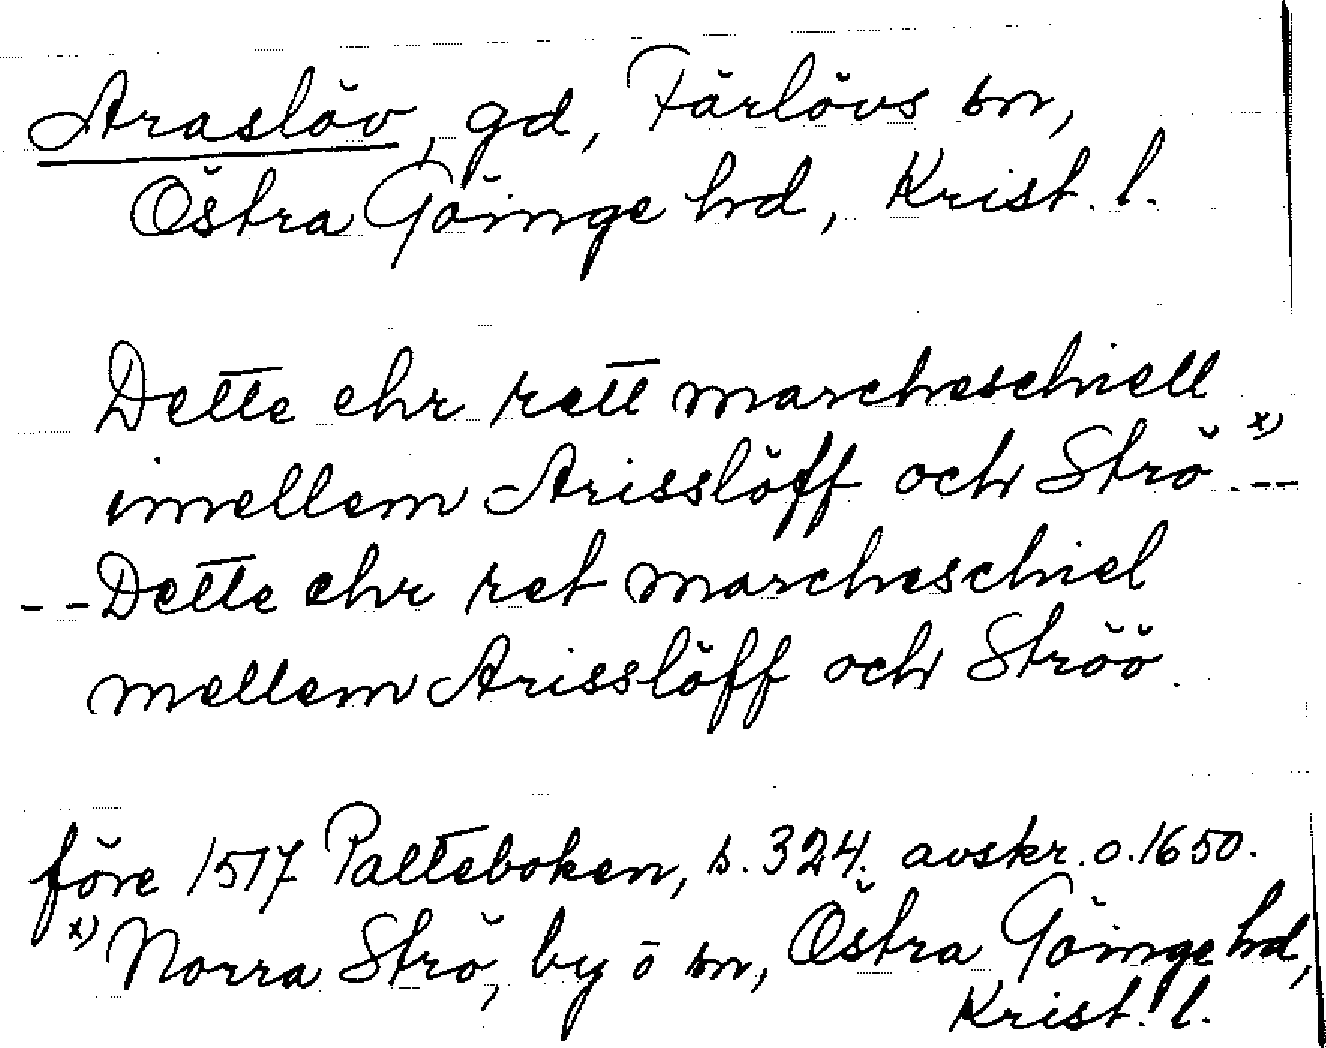 Araslöv, gd, Färlövs sn,
Östra Göinge hd, Krist. l.
Dette ehr rett marcheschiell
imellem Arisslöff och Strö x) --
-- Dette ehr ret marcheschiel
mellem Arisslöff och Ströö.
före 1517 Palteboken, s. 324. avskr. o. 1650.
x) Norra Strö, by o sn, Östra Göinge hd,
Krist. l.